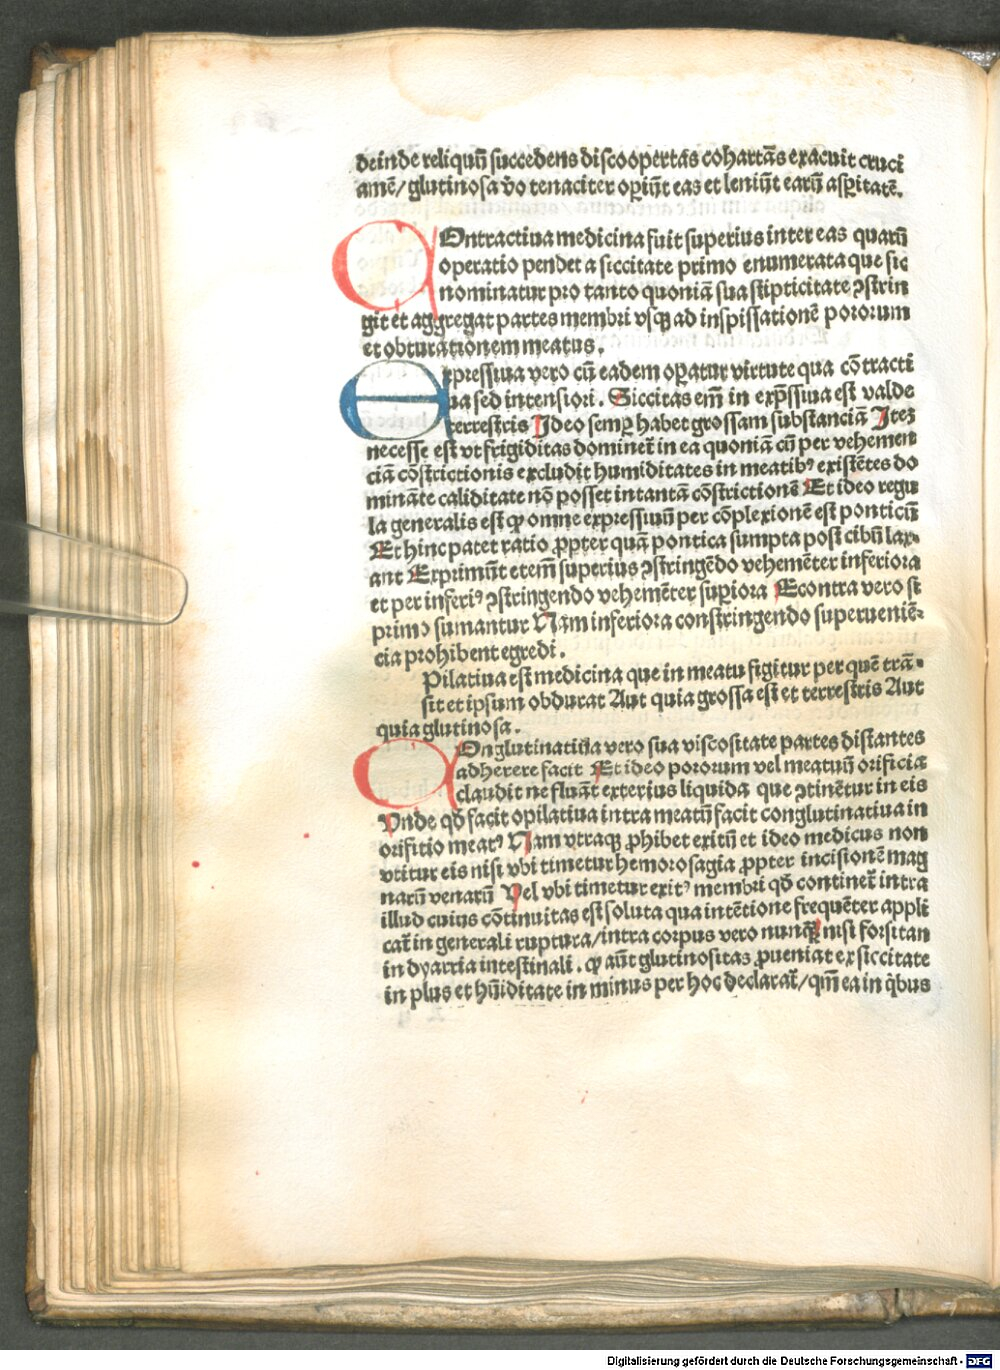 deinde reliquū succedens discoopertas cohartās exacuit cruci
amē/ glutinosa v̄o tenaciter op̄iūt eas et leniūt earū asp̄itatē.
COntractiua medicina fuit superius inter eas quarū
operatio pendet a siccitate primo enumerata que sic
nominatur pro tanto quoniā sua stipticitate ꝯstrin
git et aggregat partes membri vsqꝫ ad inspissationē pororum
et obturationem meatus.
Expressiua vero cū eadem op̄atur virtute qua cōtracti
ua sed intensiori. Siccitas em̄ in exp̄ssiua est valde
terrestris Ideo semp̄ habet grossam substanciā Iteꝫ
necesse est vt frigiditas dominet̄ in ea quoniā cū per vehemen
ciā cōstrictionis excludit humiditates in meatibꝰ existētes do
mināte caliditate nō posset in tantā cōstrictionē Et ideo regu
la generalis est ꝙ omne expressiuū per cōplexionē est ponticū
Et hinc patet ratio ꝓpter quā pontica sumpta post cibū lax-
ant Exprimūt etem̄ superius ꝯstringēdo vehemēter inferiora
et per inferiꝰ ꝯstringendo vehemēter sup̄iora Econtra vero si
primo sumantur Nam inferiora constringendo superueniē-
cia prohibent egredi.
Pilatiua est medicina que in meatu figitur per quē trā-
sit et ipsum obdurat Aut quia grossa est et terrestris Aut
quia glutinosa.
COnglutinatiua vero sua viscositate partes distantes
adherere facit Et ideo pororum vel meatuū orificia
claudit ne fluāt exterius liquida que ꝯtinētur in eis
Vnde qd̄ facit opilatiua intra meatū facit conglutinatiua in
orifitio meatꝰ Nam vtraqꝫ ꝓhibet exitū et ideo medicus non
vtitur eis nisi vbi timetur hemorosagia ꝓpter incisionē mag
narū venarū Vel vbi timetur exitꝰ membri qd̄ continet̄ intra
illud cuius cōtinuitas est soluta qua intētione frequēter appli
cat̄ in generali ruptura/intra corpus vero nunqꝫ nisi forsitan
in dyarria intestinali. ꝙ aūt glutinositas ꝓueniat ex siccitate
in plus et hūiditate in minus per hoc declarat̄/qm̄ ea in q̄bus
Digitalisierung gefördert durch die Deutsche Forschungsgemeinschaft - DFG